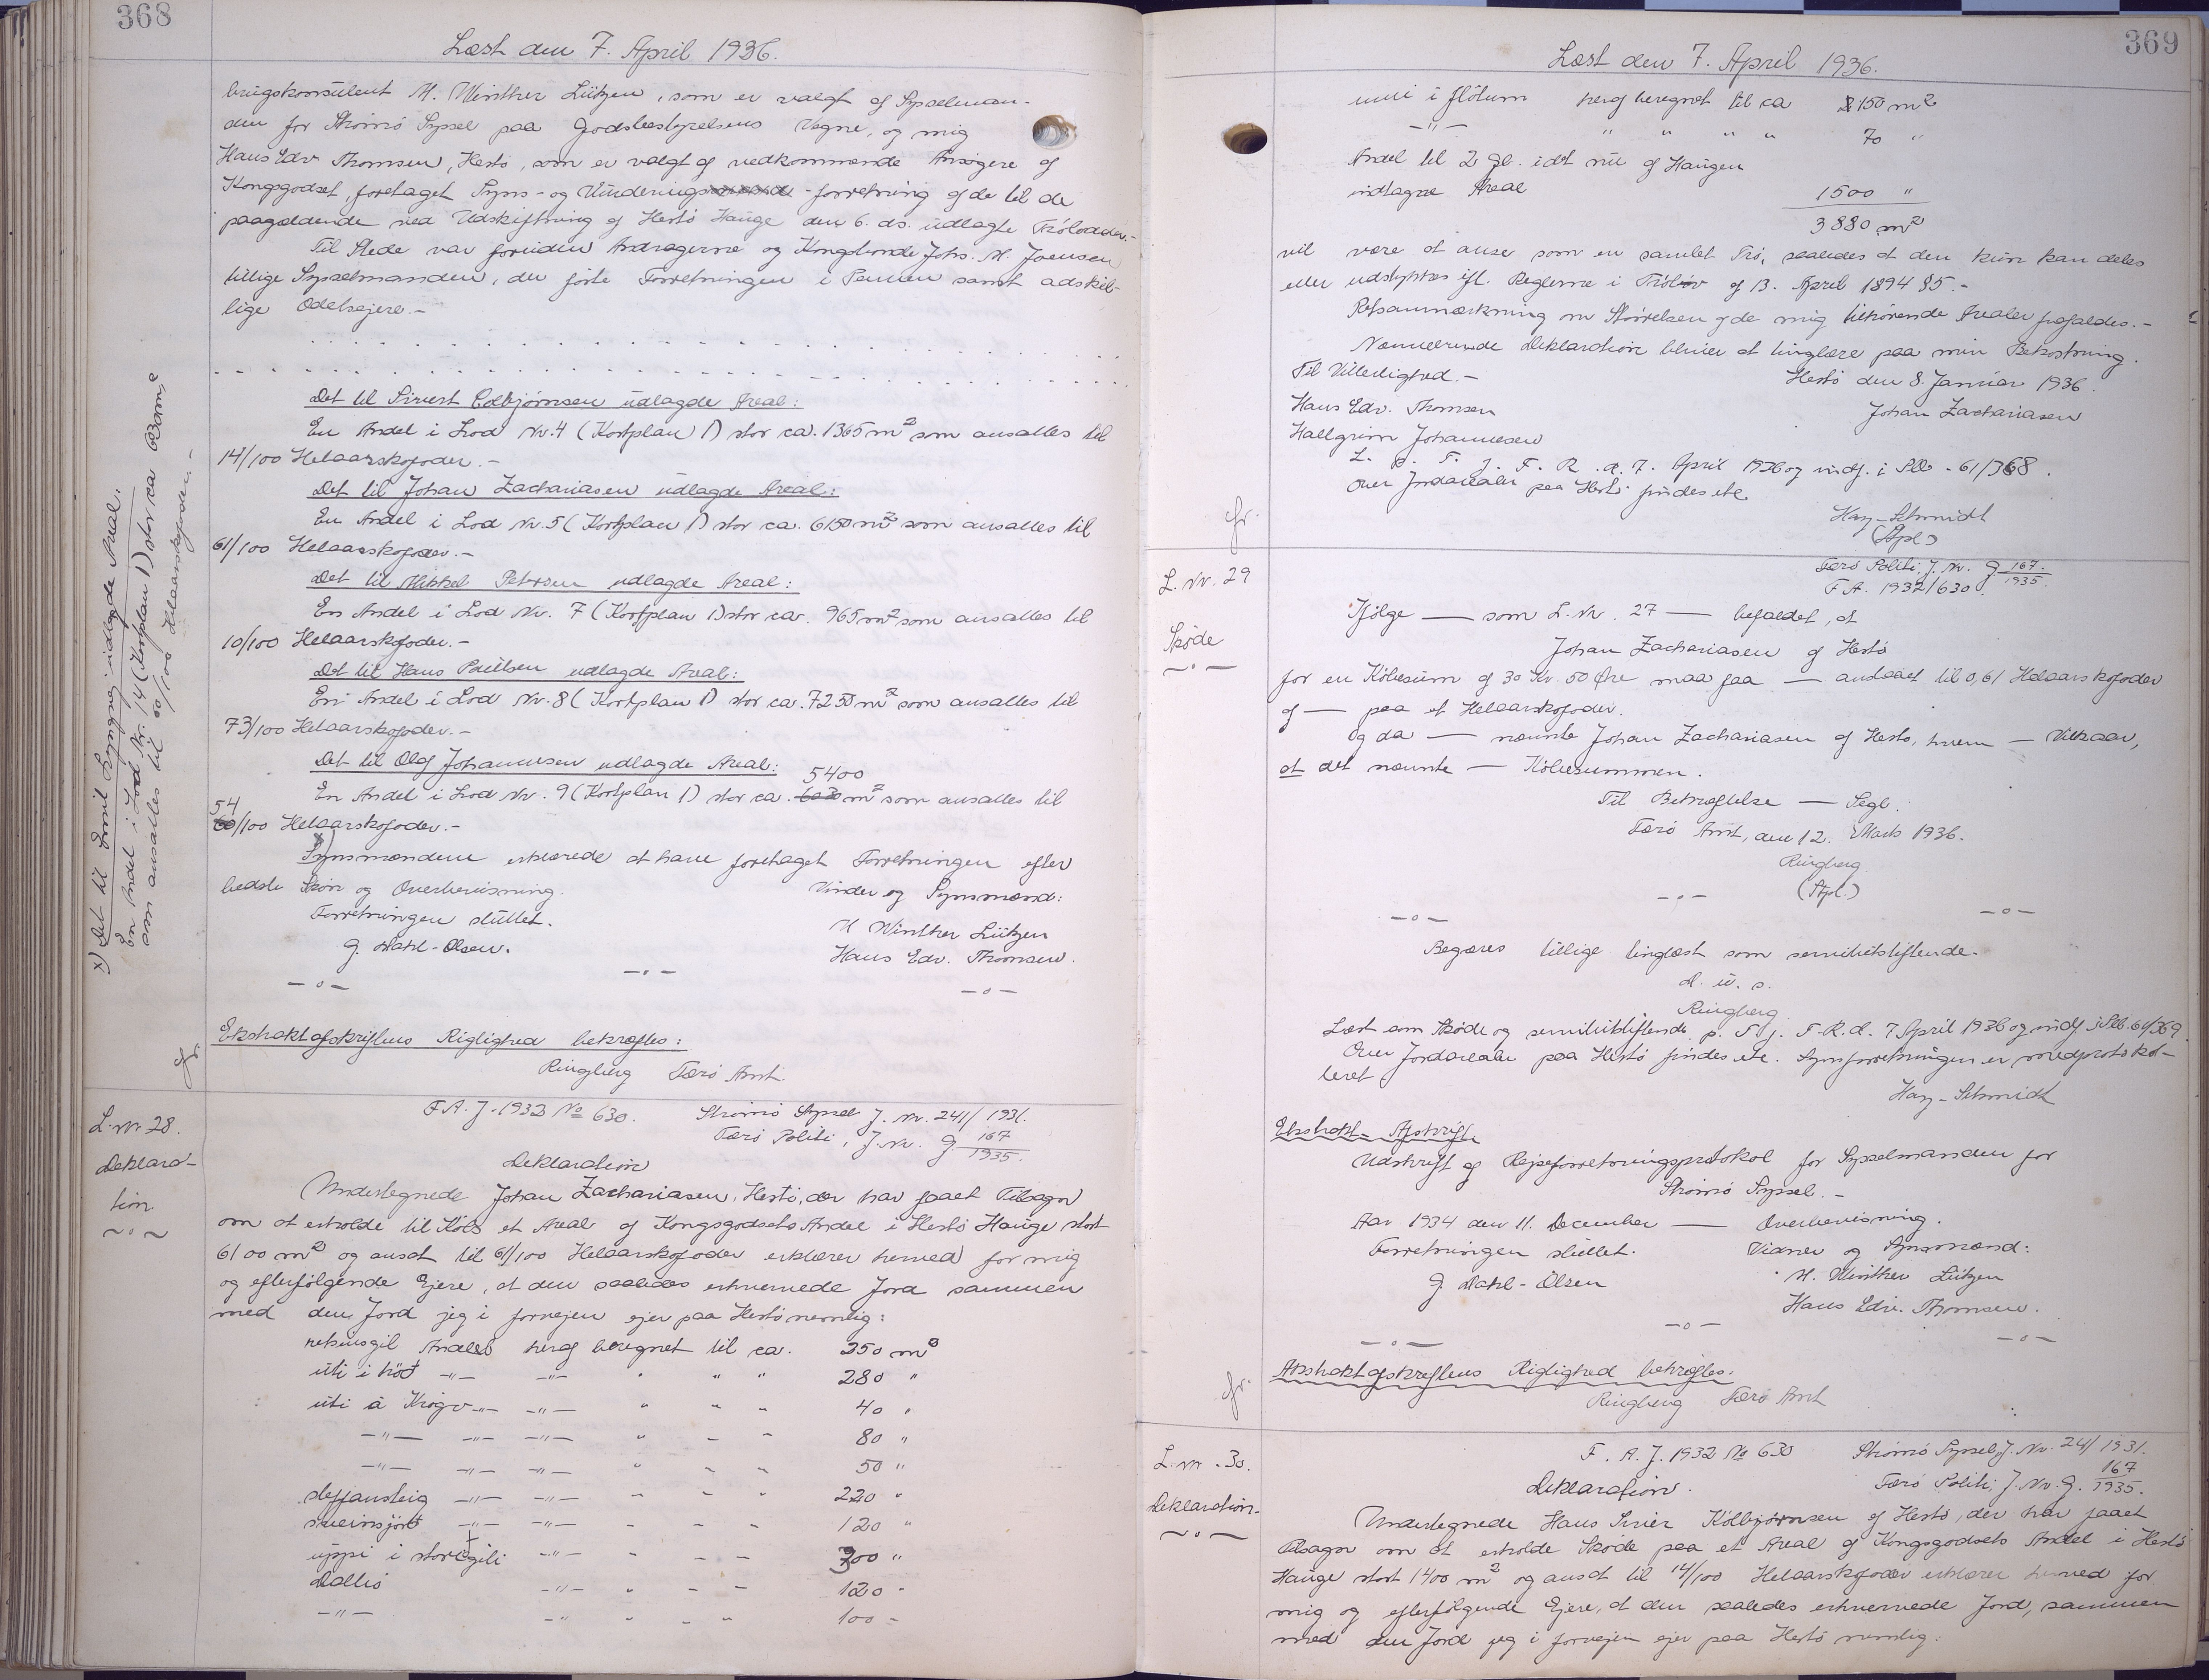 368
Læst den 7. April 1936.
brugskonsulent M. Winther Lützen, som er valgt af Sysselman-
den for Strømø Syssel paa Godsbestyrelsens Vegne, og mig
Hans Edv Thomsen, Hestø, som er valgt af vedkommende Ansøgere af
Kongsgodset, foretaget Syns- og Vurderings-forretning af de til de
paagældende ved Udskiftning af Hestø Hauge den 6. ds. udlagte Trölodder.-
Til Stede var foruden Andragerne og Kongsbonde Johs. M. Joensen
tillige Sysselmanden, der förte Forretningen i Pennen samt adskil-
lige Odelsejere.-
Det til Sivert Colbjørnsen udlagde Areal:
En Andel i Lod Nr. 4 (Kortplan 1) stor ca. 1365 m² som ansattes til
14/100 Helaarskofoder.-
Det til Johan Zachariasen udlagde Areal:
En Andel i Lod Nr. 5 (Kortplan 1) stor ca. 6150 m² som ansattes til
61/100 Helaarskofoder.-
Det til Mikkel Petersen udlagde Areal:
En Andel i Lod Nr. 7 (Kortplan 1) stor ca. 965 m² som ansattes til
10/100 Helaarskofoder.-
Det til Hans Poulsen udlagde Areal:
En Andel i Lod Nr. 8 (Kortplan 1) stor ca. 7250 m² som ansattes til
73/100 Helaarskofoder.-
Det til Olaf Johannesen udlagde Areal:
5400
En Andel i Lod Nr. 9 (Kortplan 1) stor ca. 6030 m² som ansattes til
54
60/100 Helaarskofoder.-
x)
Synsmændene erklærede at have foretaget Forretningen efter
bedste Skön og Overbevisning.
Vurder og Synsmænd:
Forretningen sluttet.
M Winther Lützen
J. Dahl-Olsen.
Hans Edv. Thomsen.
Ekstraktafskriftens Rigtighed bekræftes:
Ringberg Færö Amt.
x) Det til Emil udlagde Areal:
En Andel i Lod Nr. 14 (Kortplan 1) stor ca
som ansattes til 60/100 Helaarskofoder.-
L. nr. 28.
Deklara-
tion.
F.A. J. 1932 No 630. Strömö Syssel J. nr. 241/1931.
Færö Politi, J. Nr. G. 167/1935.
Deklaration
Undertegnede Johan Zachariasen, Hestö, der har faaet Tilsagn
om at erholde til Köbs et Areal af Kongsgodsets Andel i Hestö Hauge stort
6100 m² og ansat til 61/100 Helaarskofoder erklærer herved for mig
og efterfölgende Ejere, at den saaledes erhvervede Jord sammen
med den Jord jeg i forvejen ejer paa Hestö nemlig:
Andel heraf beregnet til ca. 250 m²
úti i höd -"- -"- " " " 280 "
úti á Krógv -"- -"- " " " 40 "
-"- -"- -"- " " " 80 "
-"- -"- -"- " " " 50 "
steffansteig -"- -"- " " " 220 "
sveinsjörd -"- -"- " " " 120 "
uppi i storagili -"- " " " 300 "
Dallis -"- " " " 120 "
-"- -"- " " " 100 "
369
Læst den 7. April 1936.
inni i flötum heraf beregnet til ca 2150 m²
-"- " " " " 70 "
Andel til 2 gl. i det nu af Haugen
indtagne Areal 1500 "
3880 m²
vil være at anse som en samlet Trö, saaledes at den kun kan deles
eller udstykkes ifl. Reglerne i Trölov af 13. April 1894 §5.-
Retsanmærkning om Störrelsen af de mig tilhörende Arealer frafaldes.-
Nærværende Deklaration bliver at tinglæse paa min Bekostning.
Til Vitterlighed.-
Hestö den 8. Januar 1936.
Hans Edv. Thomsen
Johan Zachariasen
Hallgrim Johannesen
L. p. T. f. F. R. d. 7. April 1936 og indf. i Slb. 61/368.
Over Jordarealer paa Hestö findes etc.
Hay-Schmidt
(Spl.)
Færö Politi, J. Nr. G 167/1935.
F.A. 1932/630.
L. Nr. 29
Sköde
Ifölge — som L. Nr. 27 — befalet, at
Johan Zachariasen af Hestö
for en Köbesum af 30 Kr. 50 Øre maa faa — anslaaet til 0,61 Helaarskofoder
af — paa et Helaarskofoder.
Og da — nævnte Johan Zachariasen af Hestö, hvem — Vilkaar,
at det nævnte — Köbesummen.
Til Bekræftelse — Segl.
Færö Amt, den 12. Marts 1936.
Ringberg
(Spl.)
Begæres tillige tinglæst som servitutstiftende.
d. u. s.
Ringberg
Læst som Sköde og servitutstiftende p. T. f. F. R. d. 7 April 1936 og indf. i Slb. 61/369.
Over Jordarealer paa Hestö findes etc. Synsforretningen er medprotokol-
leret
Hay-Schmidt
Ekstrakt-Afskrift
Udskrift af Rejseforretningsprotokol for Sysselmanden for
Strömö Syssel.-
Aar 1934 den 11. December — Overbevisning.
Forretningen sluttet.
Vidner og Synsmænd:
J. Dahl-Olsen
M. Winther Lützen
Hans Edv. Thomsen.
Ekstraktafskriftens Rigtighed bekræftes.
Ringberg Færö Amt
L. nr. 30.
Deklaration.
F. A. J. 1932 No 630 Strömö Syssel, J. Nr. 241/1931.
Deklaration. Færö Politi, J. Nr. G. 167/1935.
Undertegnede Hans Siver Kolbjørnsen af Hestö, der har faaet
Tilsagn om at erholde Sköde paa et Areal af Kongsgodsets Andel i Hestö
Hauge stort 1400 m² og ansat til 14/100 Helaarskofoder erklærer herved for
mig og efterfölgende Ejere, at den saaledes erhvervede Jord, sammen
med den Jord jeg i forvejen ejer paa Hestö nemlig: